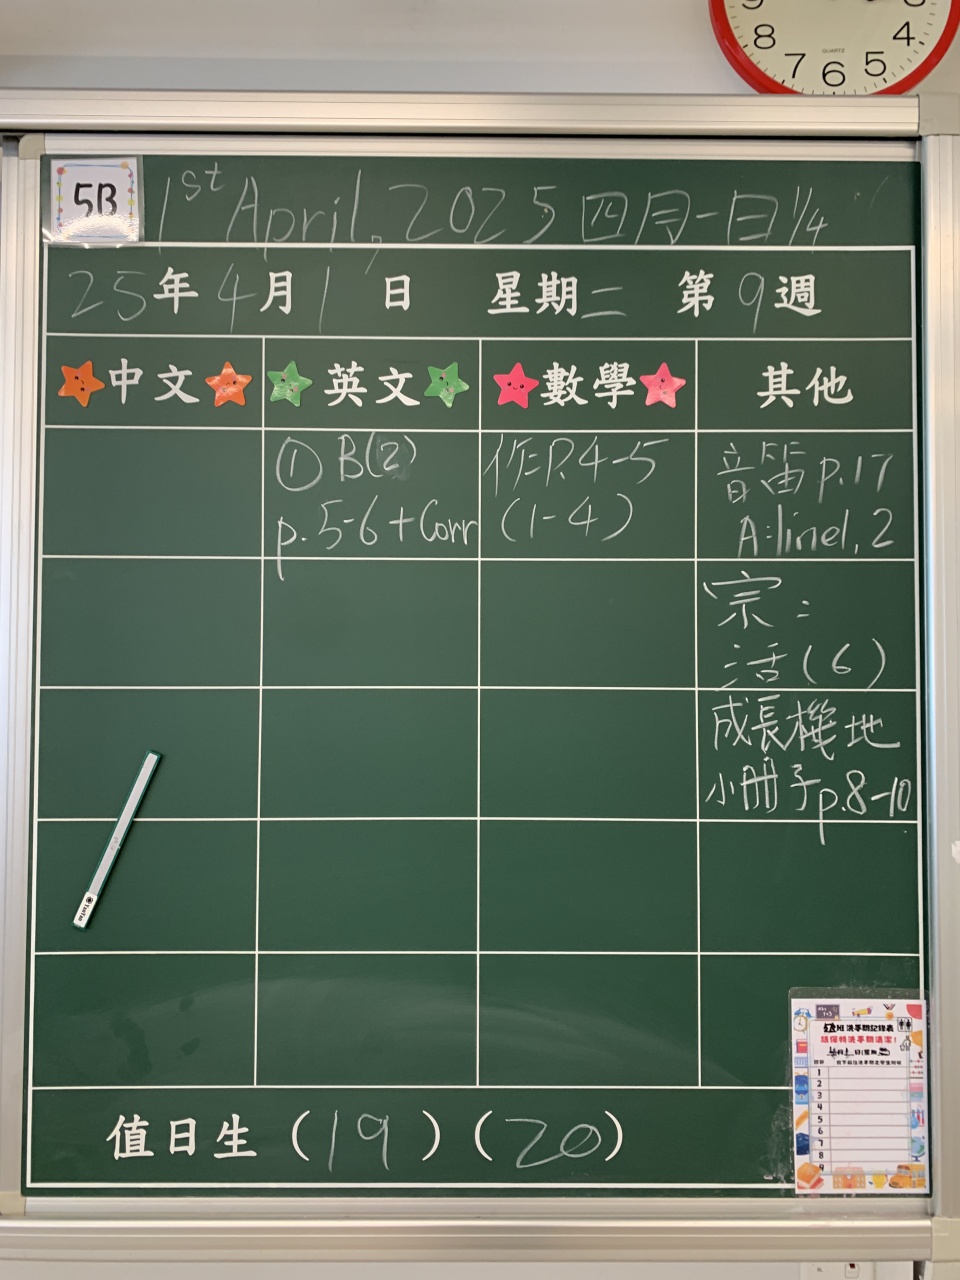 8 7 6 5 4
QUARTZ
5B
1st April, 2025 四月一日 1/4
25年4月1日 星期二 第9週
中文 英文 數學 其他
① B(2)
p.5-6+Corr
作:P.4-5
(1-4)
音笛 p.17
A:line1,2
宗:
活(6)
成長機地
小冊子p.8-10
值日生(19)(20)
1
2
3
4
5
6
7
8
9